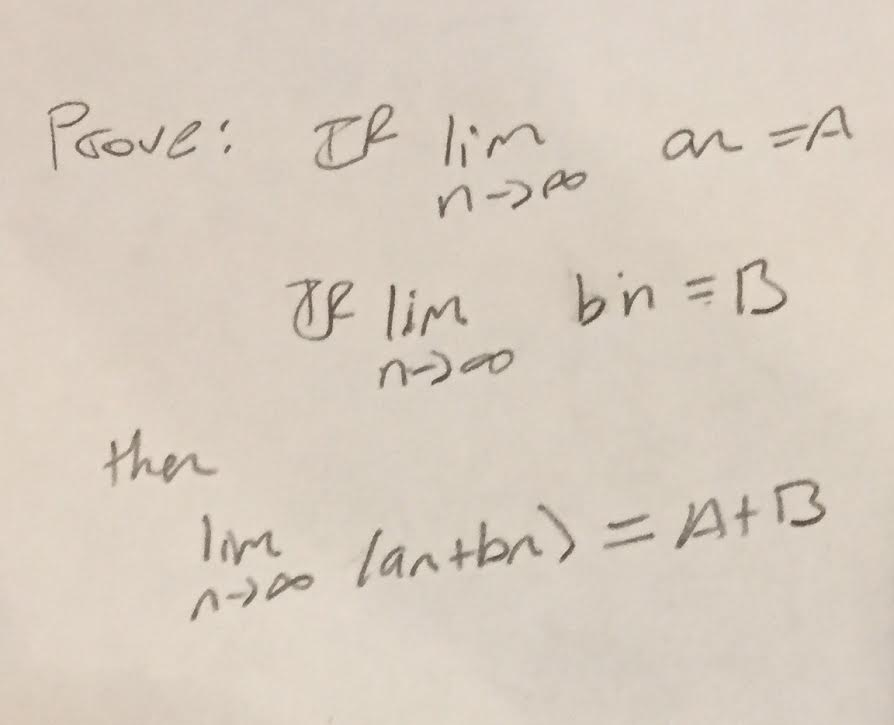 Prove: If lim an = A
n→∞
If lim bn = B
n→∞
then
lim (an+bn) = A+B
n→∞